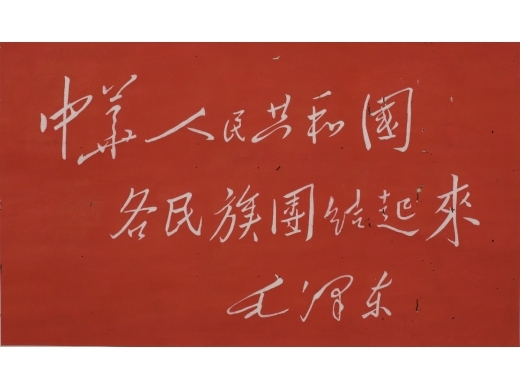 中華人民共和國
各民族團结起來
毛澤东